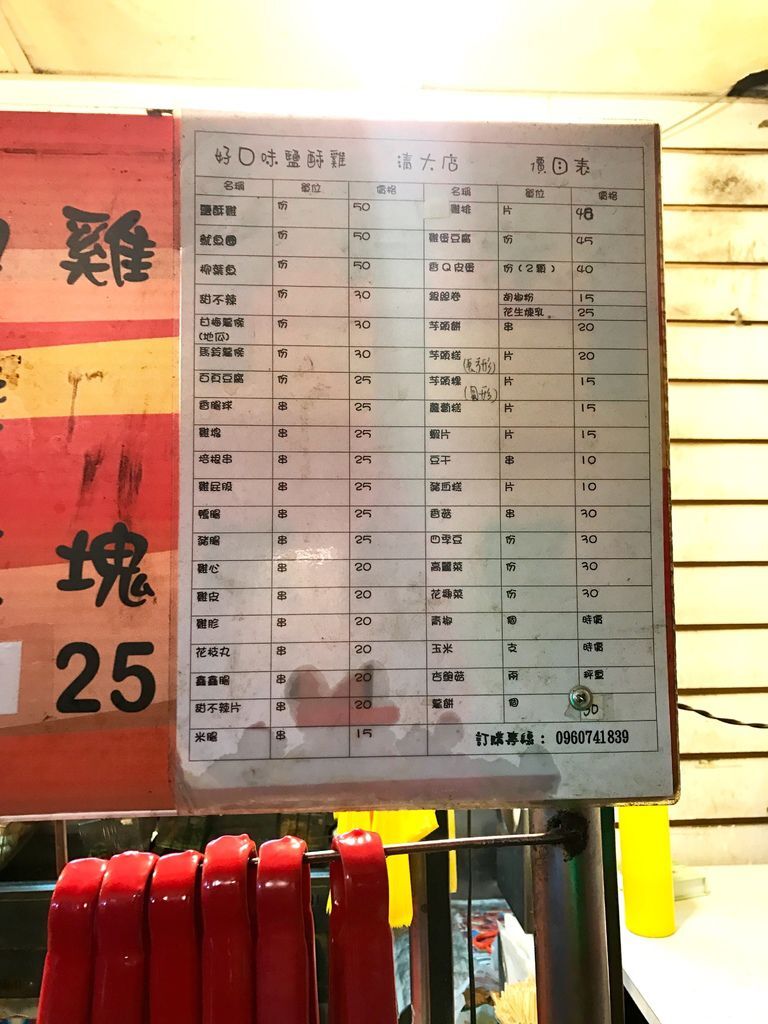 雞
塊
25
好口味鹽酥雞 清大店 價目表
名稱 單位 價格 名稱 單位 價格
鹽酥雞 份 50 雞排 片
魷魚圈 份 50 雞蛋豆腐 份 45
柳葉魚 份 50 香Q皮蛋 份(2顆) 40
甜不辣 份 30 銀絲卷 胡椒粉 15
花生煉乳 25
甘梅薯條 份 30 芋頭餅 串 20
(地瓜)
馬鈴薯條 份 30 芋頭糕 片 20
百頁豆腐 份 25 芋頭粿 片 15
(圓形)
香腸球 串 25 蘿蔔糕 片 15
雞塊 串 25 蝦片 片 15
培根串 串 25 豆干 串 10
雞屁股 串 25 豬血糕 片 10
鴨腸 串 25 香菇 串 30
豬腸 串 25 四季豆 份 30
雞心 串 20 高麗菜 份 30
雞皮 串 20 花椰菜 份 30
雞胗 串 20 青椒 個 時價
花枝丸 串 20 玉米 支 時價
鑫鑫腸 串 20 杏鮑菇 兩 秤重
甜不辣片 串 20 薯餅 個
米腸 串 15 訂購專線：0960741839